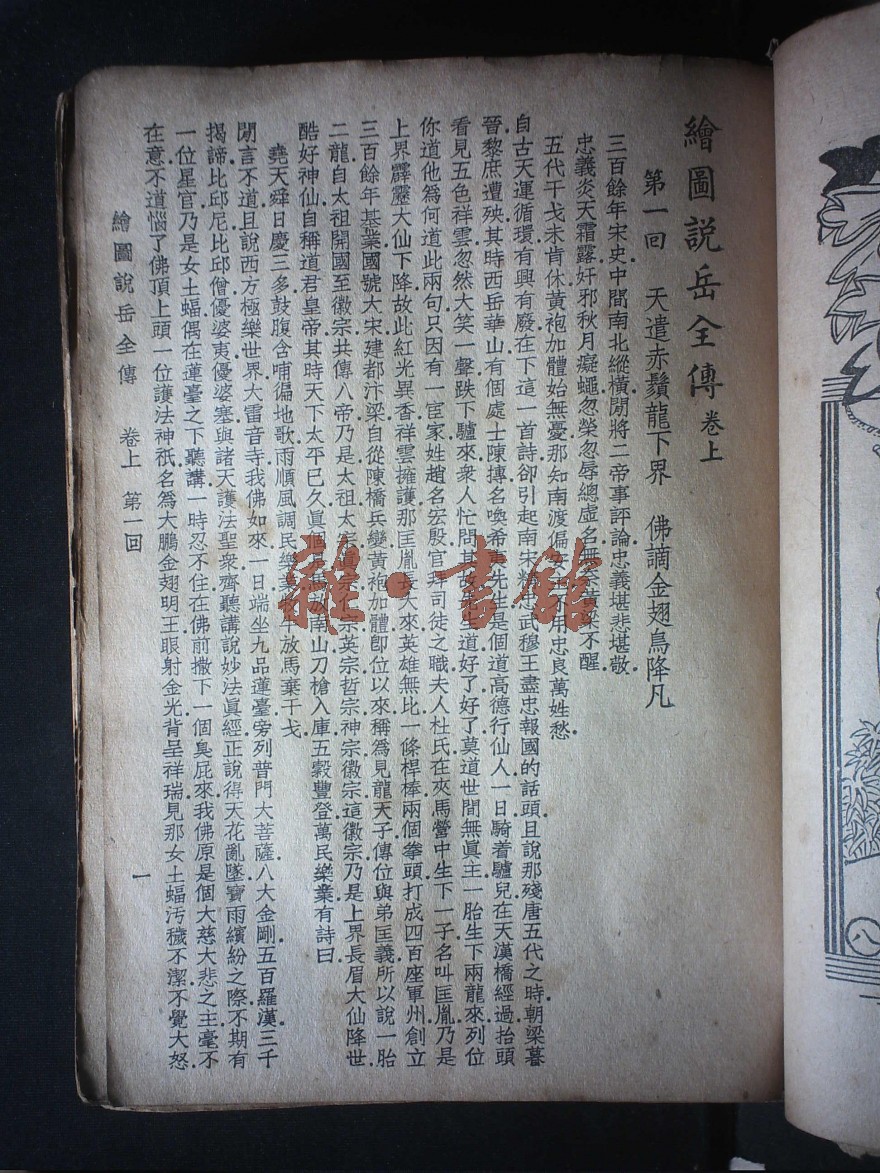 繪圖說岳全傳 卷上
第一回 天遣赤鬚龍下界 佛謫金翅鳥降凡
三百餘年宋史中間南北縱橫閒將二帝事評論忠義堪悲堪敬
忠義炎天霜露奸邪秋月癡蠅忽榮忽辱總虛名不醒
五代干戈未肯休黃袍加體始無憂那知南渡偏用忠良萬姓愁
自古天運循環有興有廢在下這一首詩卻引起南宋武穆王盡忠報國的話頭且說那殘唐五代之時朝梁暮
晉黎庶遭殃其時西岳華山有個處士陳摶名喚希先生是個道高德行仙人一日騎着驢兒在天漢橋經過抬頭
看見五色祥雲忽然大笑一聲跌下驢來衆人忙問其道好了好了莫道世間無眞主一胎生下兩龍來列位
你道他爲何道此兩句只因有一宦家姓趙名宏殷官拜司徒之職夫人杜氏在夾馬營中生下一子名叫匡胤乃是
上界霹靂大仙下降故此紅光異香祥雲擁護那匡胤長大來英雄無比一條桿棒兩個拳頭打成四百座軍州創立
三百餘年基業國號大宋建都汴梁自從陳橋兵變黃袍加體卽位以來稱爲見龍天子傳位與弟匡義所以說一胎
二龍自太祖開國至徽宗共傳八帝乃是太祖太宗眞宗仁宗英宗哲宗神宗徽宗這徽宗乃是上界長眉大仙降世
酷好神仙自稱道君皇帝其時天下太平已久眞個是馬放南山刀槍入庫五穀豐登萬民樂業有詩曰
堯天舜日慶三多鼓腹含哺偏地歌雨順風調民樂業放馬棄干戈
閒言不道且說西方極樂世界大雷音寺我佛如來一日端坐九品蓮臺旁列普門大菩薩八大金剛五百羅漢三千
揭諦比邱尼比邱僧優婆夷優婆塞與諸天護法聖衆齊聽講說妙法眞經正說得天花亂墜寶雨繽紛之際不期有
一位星官乃是女土蝠偶在蓮臺之下聽講一時忍不住在佛前撒下一個臭屁來我佛原是個大慈大悲之主毫不
在意不道惱了佛頂上頭一位護法神祇名爲大鵬金翅明王眼射金光背呈祥瑞見那女土蝠汚穢不潔不覺大怒
繪圖說岳全傳 卷上 第一回
一
雜·書館
八